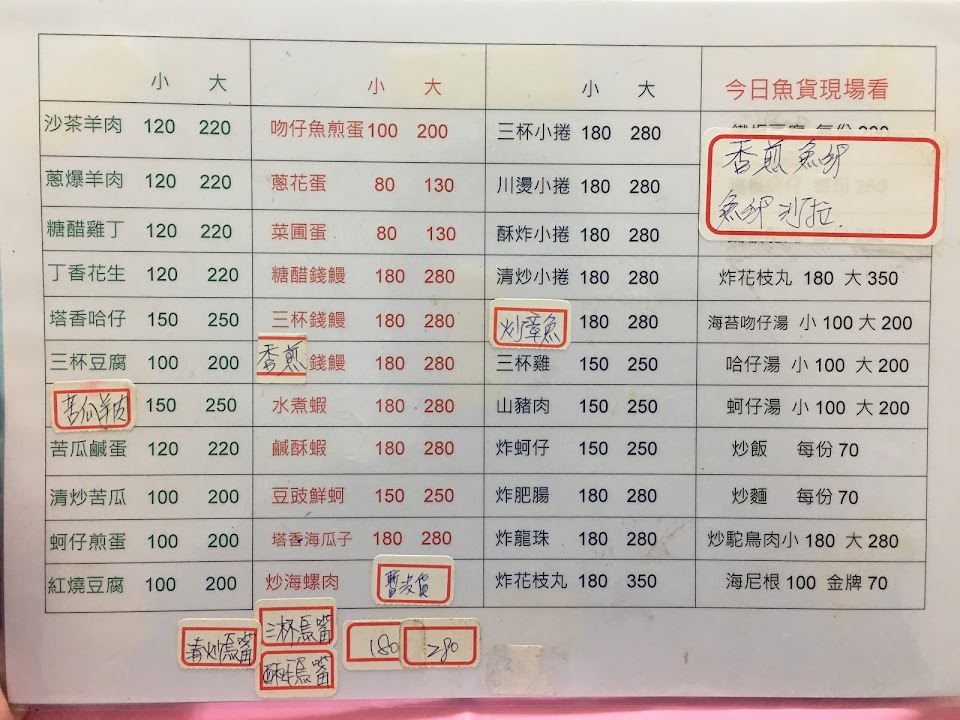 小 大
沙茶羊肉 120 220
蔥爆羊肉 120 220
糖醋雞丁 120 220
丁香花生 120 220
塔香哈仔 150 250
三杯豆腐 100 200
苦瓜羊肉 150 250
苦瓜鹹蛋 120 220
清炒苦瓜 100 200
蚵仔煎蛋 100 200
紅燒豆腐 100 200
小 大
吻仔魚煎蛋 100 200
蔥花蛋 80 130
菜圃蛋 80 130
糖醋錢鰻 180 280
三杯錢鰻 180 280
香煎錢鰻 180 280
水煮蝦 180 280
鹹酥蝦 180 280
豆豉鮮蚵 150 250
塔香海瓜子 180 280
炒海螺肉 暫沒貨
小 大
三杯小捲 180 280
川燙小捲 180 280
酥炸小捲 180 280
清炒小捲 180 280
炒章魚 180 280
三杯雞 150 250
山豬肉 150 250
炸蚵仔 150 250
炸肥腸 180 280
炸龍珠 180 280
炸花枝丸 180 350
今日魚貨現場看
香煎魚卵
魚卵沙拉
炸花枝丸 180 大 350
海苔吻仔湯 小 100 大 200
哈仔湯 小 100 大 200
蚵仔湯 小 100 大 200
炒飯 每份 70
炒麵 每份 70
炒駝鳥肉小 180 大 280
海尼根 100 金牌 70
清炒魚嘴
三杯魚嘴
酥炸魚嘴
180 280